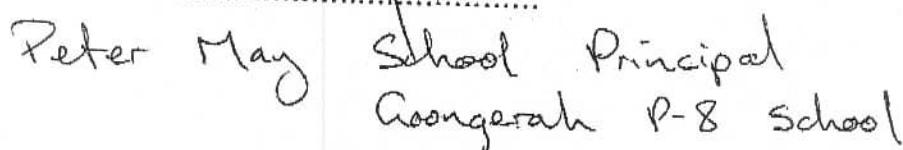 Peter May School Principal
Goongerah P-8 School